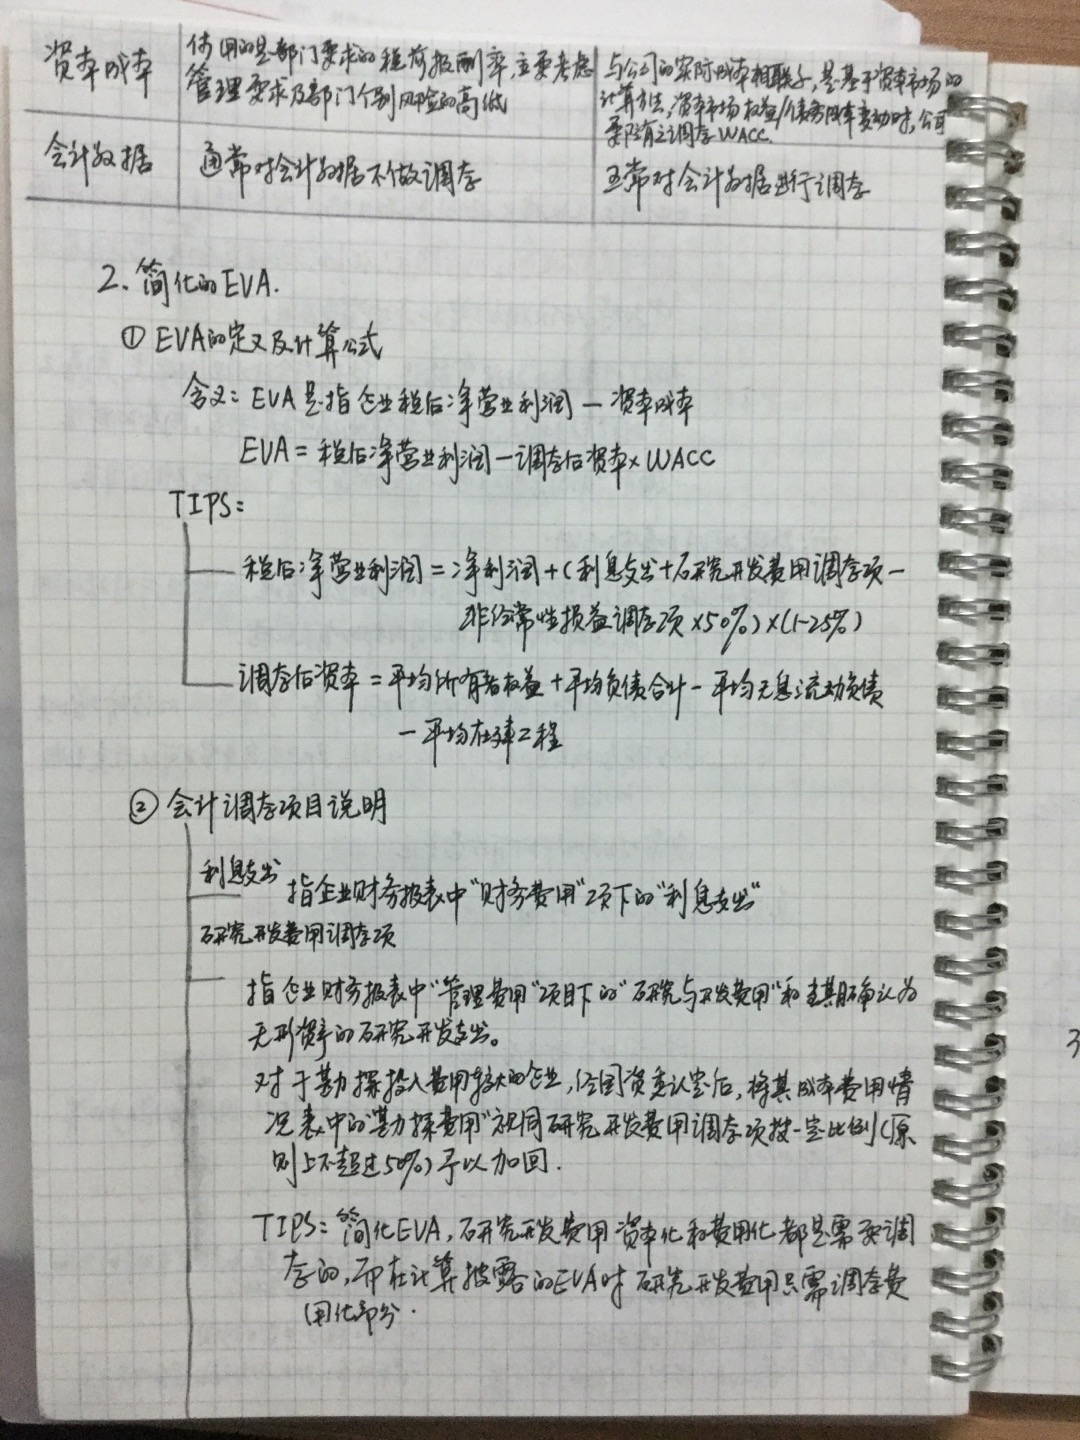 资本成本
使用的是部门要求的税前报酬率,主要考虑
管理要求及部门个别风险的高低
与公司的实际成本相联系,是基于资本市场的
计算方法,资本市场权益/债务成本变动时,公司
要随之调整WACC.
会计数据
通常对会计数据不做调整
正常对会计数据进行调整
2、简化的EVA.
① EVA的定义及计算公式
含义:EVA是指企业税后净营业利润—资本成本
EVA=税后净营业利润—调整后资本×WACC
TIPS:
税后净营业利润=净利润+(利息支出+研究开发费用调整项—
非经常性损益调整项×50%)×(1-25%)
调整后资本=平均所有者权益+平均负债合计-平均无息流动负债
—平均在建工程
② 会计调整项目说明
利息支出
指企业财务报表中"财务费用"项下的"利息支出"
研究开发费用调整项
指企业财务报表中"管理费用"项目下的"研究与开发费用"和当期确认为
无形资产的研究开发支出。
对于勘探投入费用较大的企业,经国资委认定后,将其成本费用情
况表中的"勘探费用"视同研究开发费用调整项按一定比例(原
则上不超过50%)予以加回.
TIPS:简化EVA,研究开发费用资本化和费用化都是需要调
整的,而在计算披露的EVA时研究开发费用只需调整费
用化部分.
3